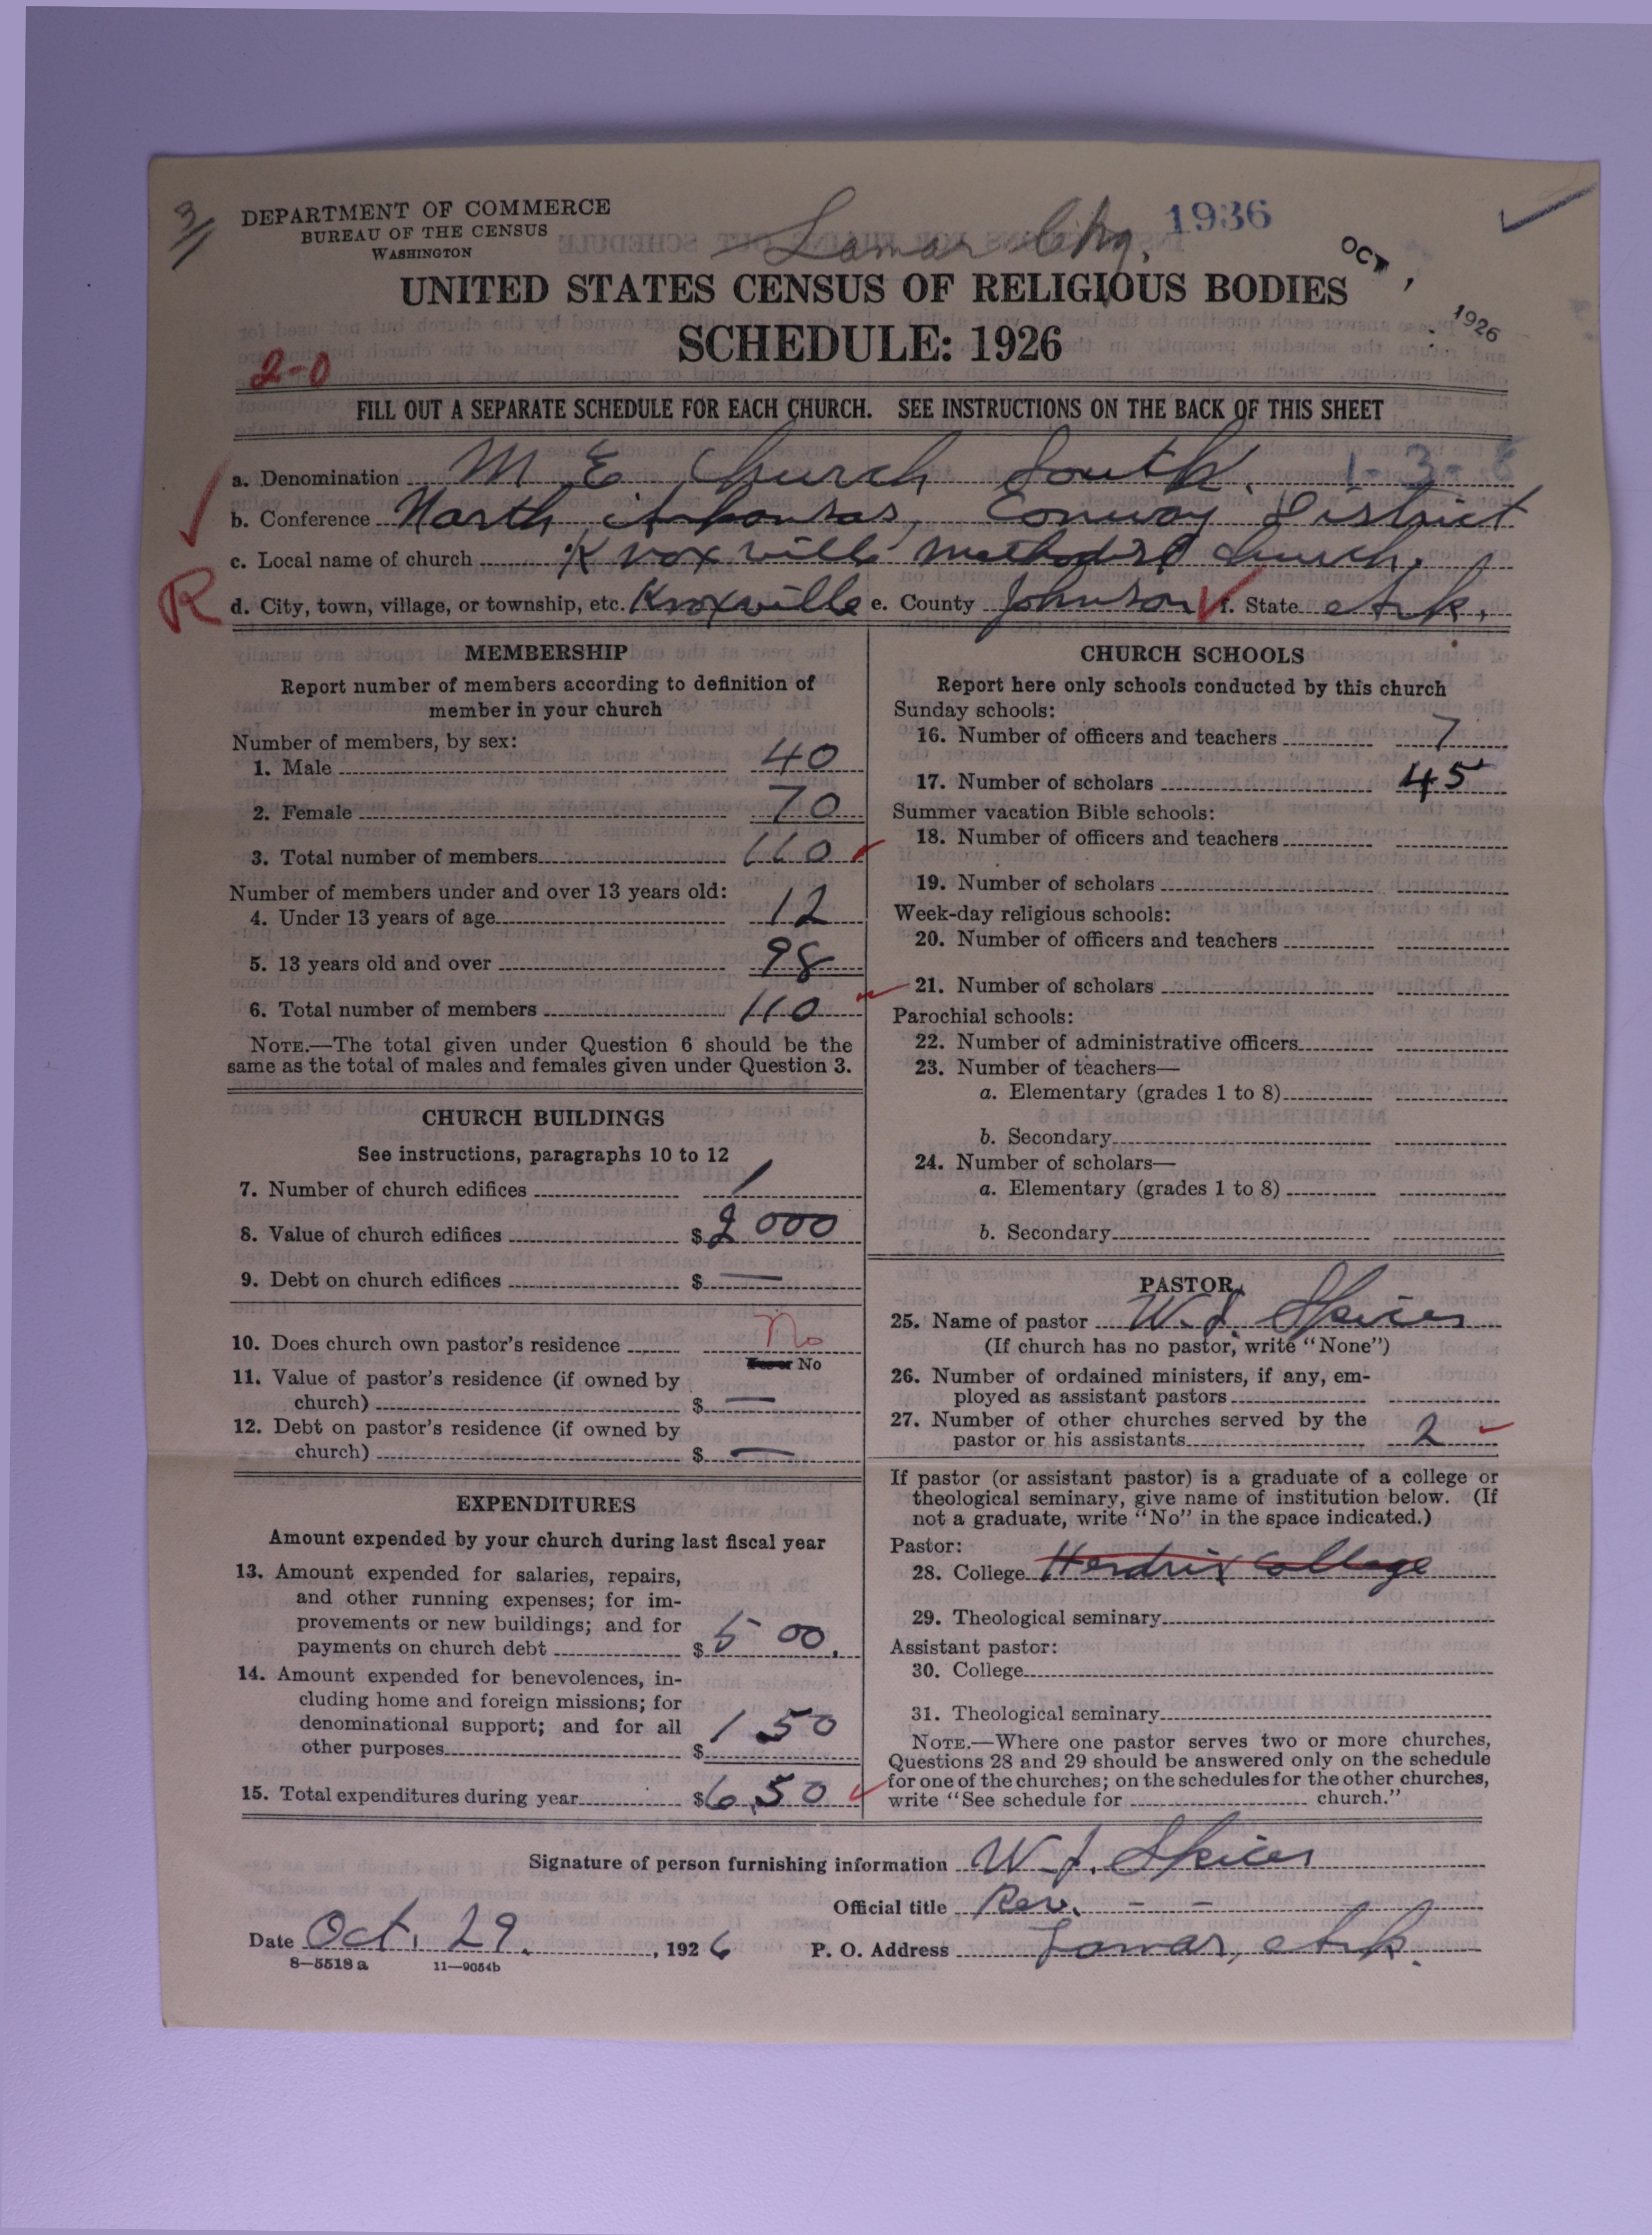 3
DEPARTMENT OF COMMERCE
BUREAU OF THE CENSUS
WASHINGTON
Lamar Chg. 1936
OCT 1926
UNITED STATES CENSUS OF RELIGIOUS BODIES
SCHEDULE: 1926
2-0
FILL OUT A SEPARATE SCHEDULE FOR EACH CHURCH. SEE INSTRUCTIONS ON THE BACK OF THIS SHEET
a. Denomination M E Church South. 1-3-8
b. Conference North Arkansas, Conway District
c. Local name of church Knoxville Methodist Church.
R
d. City, town, village, or township, etc. Knoxville e. County Johnson f. State Ark.
MEMBERSHIP
Report number of members according to definition of
member in your church
Number of members, by sex:
1. Male 40
2. Female 70
3. Total number of members 110
Number of members under and over 13 years old:
4. Under 13 years of age 12
5. 13 years old and over 98
6. Total number of members 110
NOTE.—The total given under Question 6 should be the
same as the total of males and females given under Question 3.
CHURCH BUILDINGS
See instructions, paragraphs 10 to 12
7. Number of church edifices 1
8. Value of church edifices $ 2000
9. Debt on church edifices $ —
10. Does church own pastor's residence No
No
11. Value of pastor's residence (if owned by
church) $ —
12. Debt on pastor's residence (if owned by
church) $ —
EXPENDITURES
Amount expended by your church during last fiscal year
13. Amount expended for salaries, repairs,
and other running expenses; for im-
provements or new buildings; and for
payments on church debt $ 500.
14. Amount expended for benevolences, in-
cluding home and foreign missions; for
denominational support; and for all
other purposes $ 150
15. Total expenditures during year $ 650
CHURCH SCHOOLS
Report here only schools conducted by this church
Sunday schools:
16. Number of officers and teachers 7
17. Number of scholars 45
Summer vacation Bible schools:
18. Number of officers and teachers
19. Number of scholars
Week-day religious schools:
20. Number of officers and teachers
21. Number of scholars
Parochial schools:
22. Number of administrative officers
23. Number of teachers—
a. Elementary (grades 1 to 8)
b. Secondary
24. Number of scholars—
a. Elementary (grades 1 to 8)
b. Secondary
PASTOR
25. Name of pastor W. J. Spicer
(If church has no pastor, write "None")
26. Number of ordained ministers, if any, em-
ployed as assistant pastors
27. Number of other churches served by the
pastor or his assistants 2
If pastor (or assistant pastor) is a graduate of a college or
theological seminary, give name of institution below. (If
not a graduate, write "No" in the space indicated.)
Pastor:
28. College Hendrix College
29. Theological seminary
Assistant pastor:
30. College
31. Theological seminary
NOTE.—Where one pastor serves two or more churches,
Questions 28 and 29 should be answered only on the schedule
for one of the churches; on the schedules for the other churches,
write "See schedule for church."
Signature of person furnishing information W. J. Spicer
Official title Rev. - -
Date Oct. 29. , 1926 P. O. Address Lamar, Ark.
8—5518 a 11—9054b